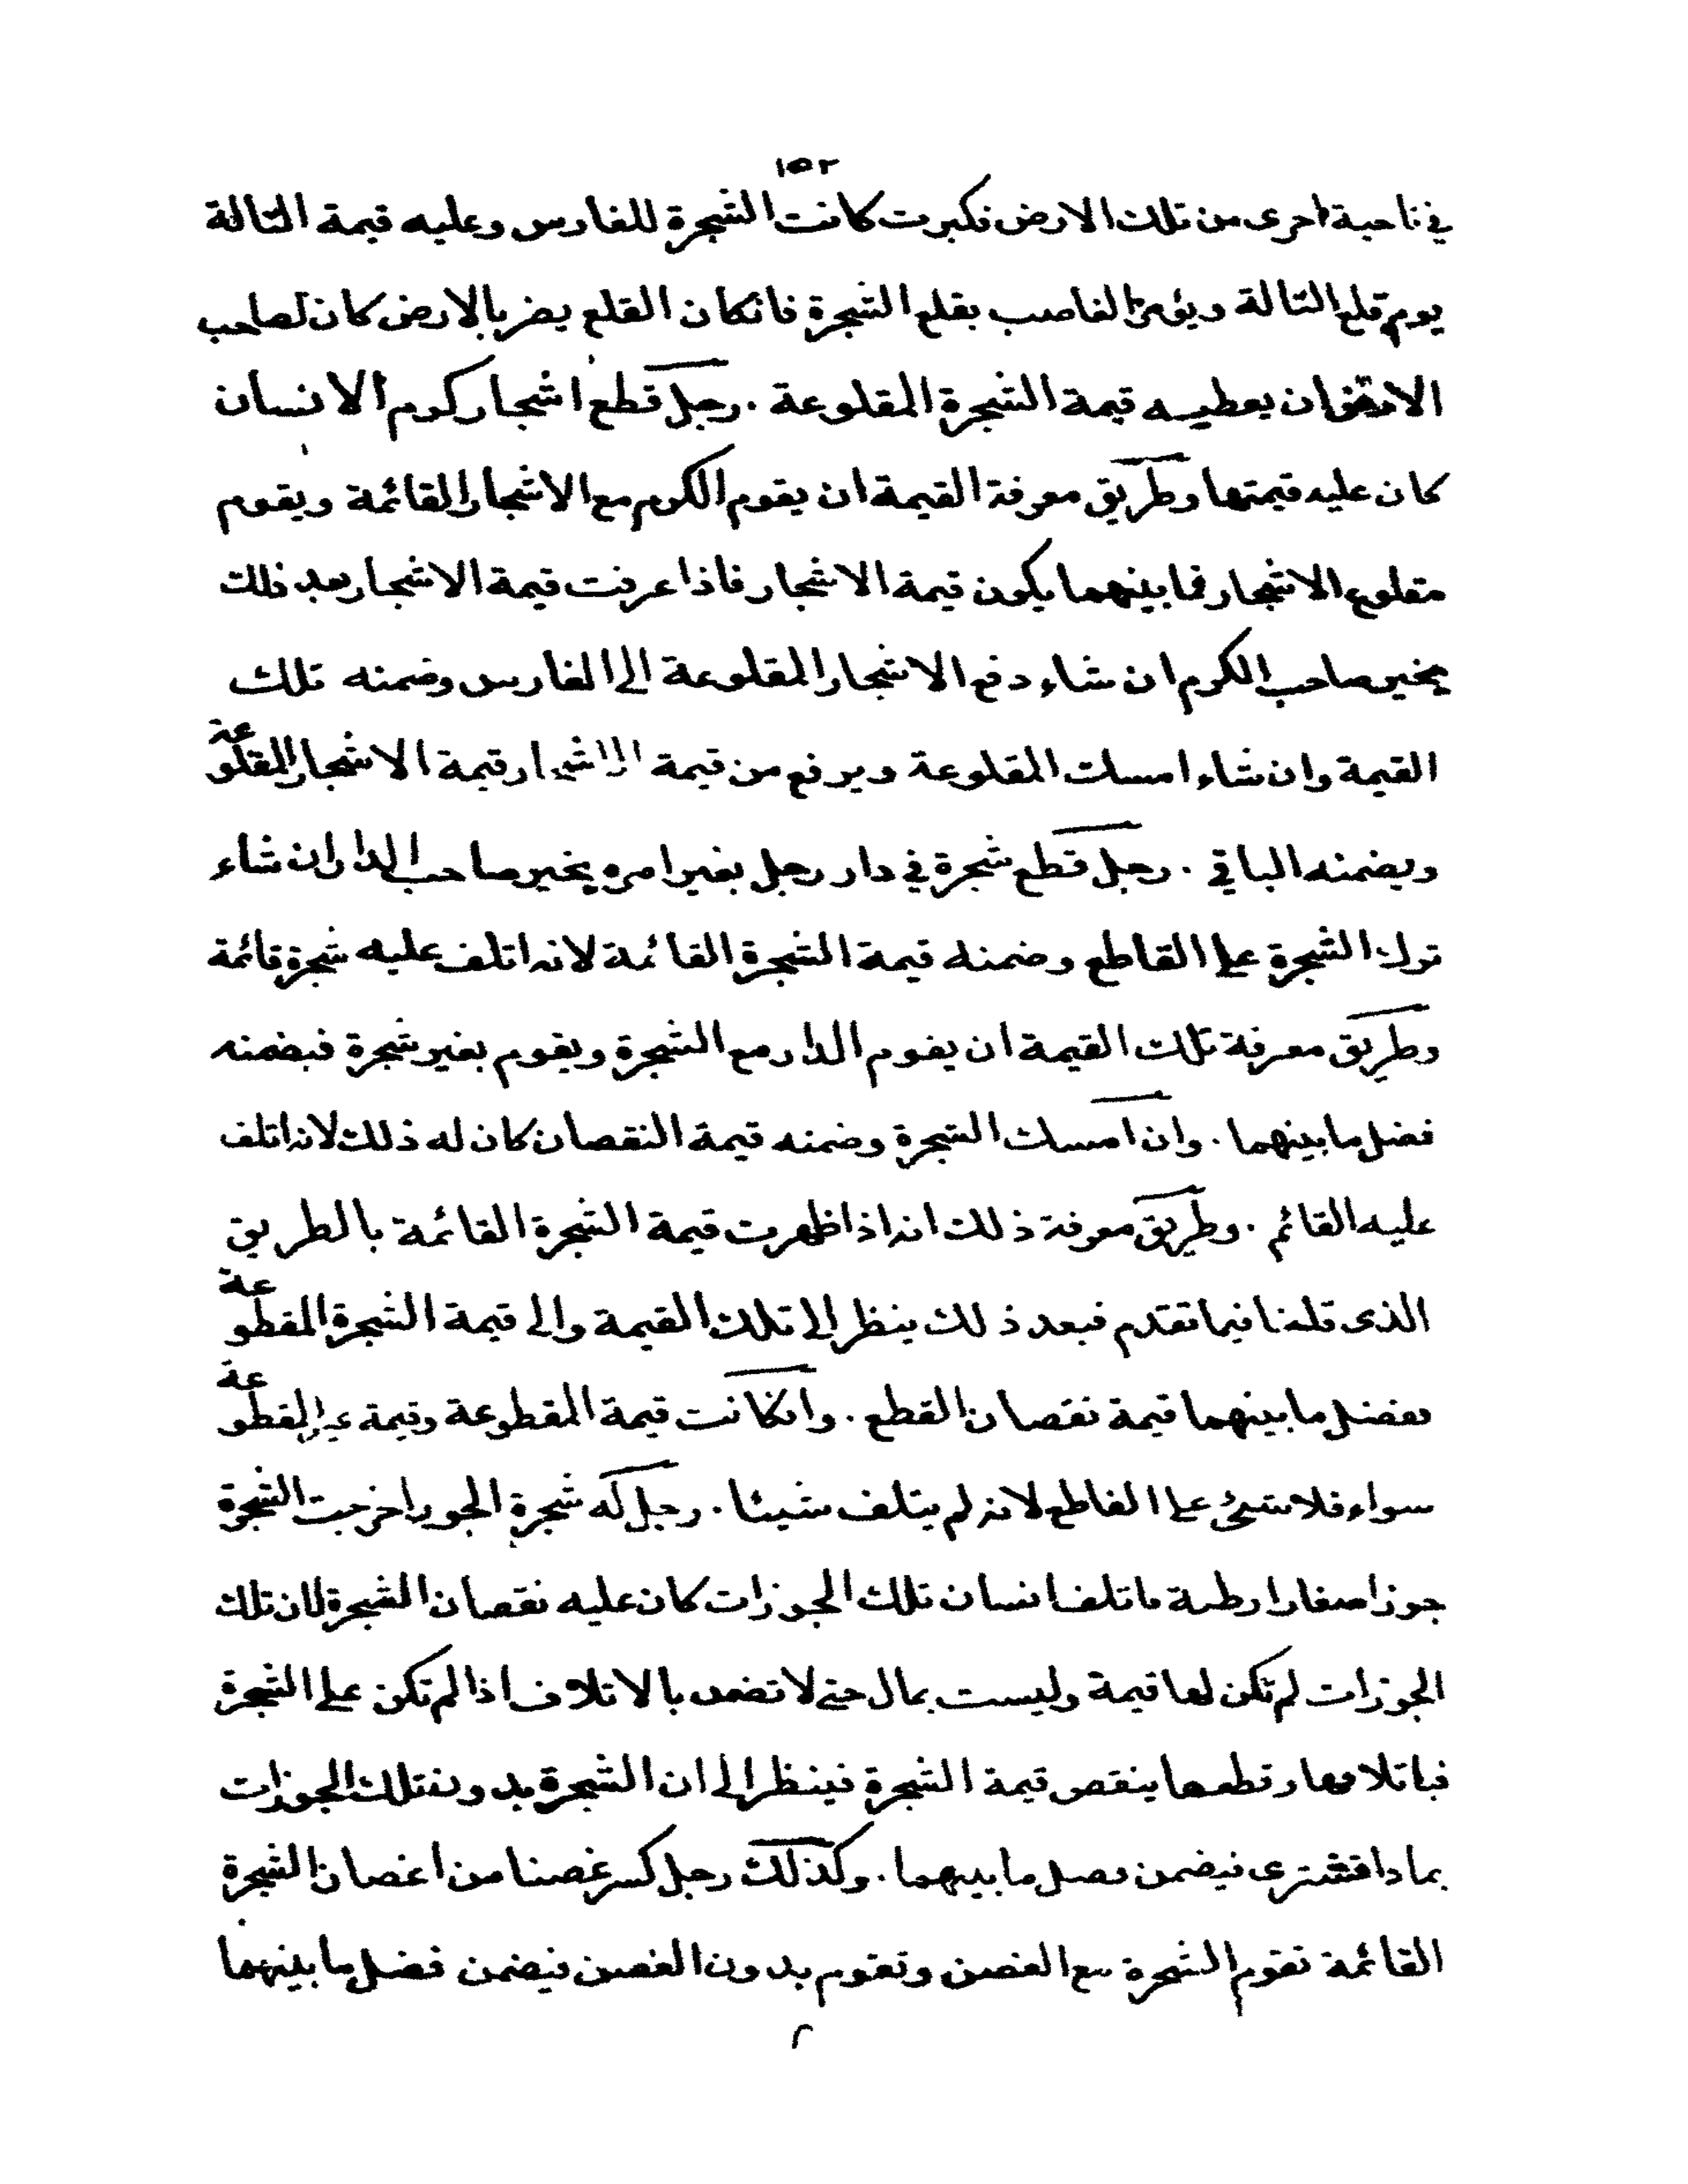 ١٥٢
في ناحية اخرى من تلك الارض فكبرت كانت الشجرة للغارس وعليه قيمة التالة
يوم قلع التالة ويؤمر الغاصب بقلع الشجرة فانكان القلع يضر بالارض كان لصاحب
الارض ان يعطيه قيمة الشجرة المقلوعة . رجل قطع اشجار كرم الانسان
كان عليه قيمتها وطريق معرفة القيمة ان يقوم الكرم مع الاشجار القائمة ويقوم
مقلوع الاشجار فما بينهما يكون قيمة الاشجار فاذا عرفت قيمة الاشجار بعد ذلك
يخير صاحب الكرم ان شاء دفع الاشجار المقلوعة الى الغارس وضمنه تلك
القيمة وان شاء امسك المقلوعة ويرفع من قيمة الاشجار قيمة الاشجار المقلوعة
ويضمنه الباقي . رجل قطع شجرة في دار رجل بغير امره يخير صاحب الدار ان شاء
ترك الشجرة على القاطع وضمنه قيمة الشجرة القائمة لانه اتلف عليه شجرة قائمة
وطريق معرفة تلك القيمة ان يقوم الدار مع الشجرة ويقوم بغير شجرة فيضمنه
فضل ما بينهما . وان امسك الشجرة وضمنه قيمة النقصان كان له ذلك لانه اتلف
عليه القائم . وطريق معرفة ذلك انه اذا ظهرت قيمة الشجرة القائمة بالطريق
الذى قلنا فيما تقدم فبعد ذلك ينظر الى تلك القيمة والى قيمة الشجرة المقطوعة
بفضل ما بينهما قيمة نقصان القطع . وانكانت قيمة المقطوعة وقيمة غير المقطوعة
سواء فلا شئ على القاطع لانه لم يتلف شيئا . رجل له شجرة الجوز اخرجت الشجرة
جوزا صغارا رطبة فاتلف انسان تلك الجوزات كان عليه نقصان الشجرة لان تلك
الجوزات لم تكن لها قيمة وليست بمال حتى لا تضمن بالاتلاف اذا لم تكن على الشجرة
فباتلافها وقطعها ينقص قيمة الشجرة فينظر الى ان الشجرة بدون تلك الجوزات
بماذا تشترى فيضمن فضل ما بينهما . وكذلك رجل كسر غصنا من اغصان الشجرة
القائمة تقوم الشجرة مع الغصن وتقوم بدون الغصن فيضمن فضل ما بينهما